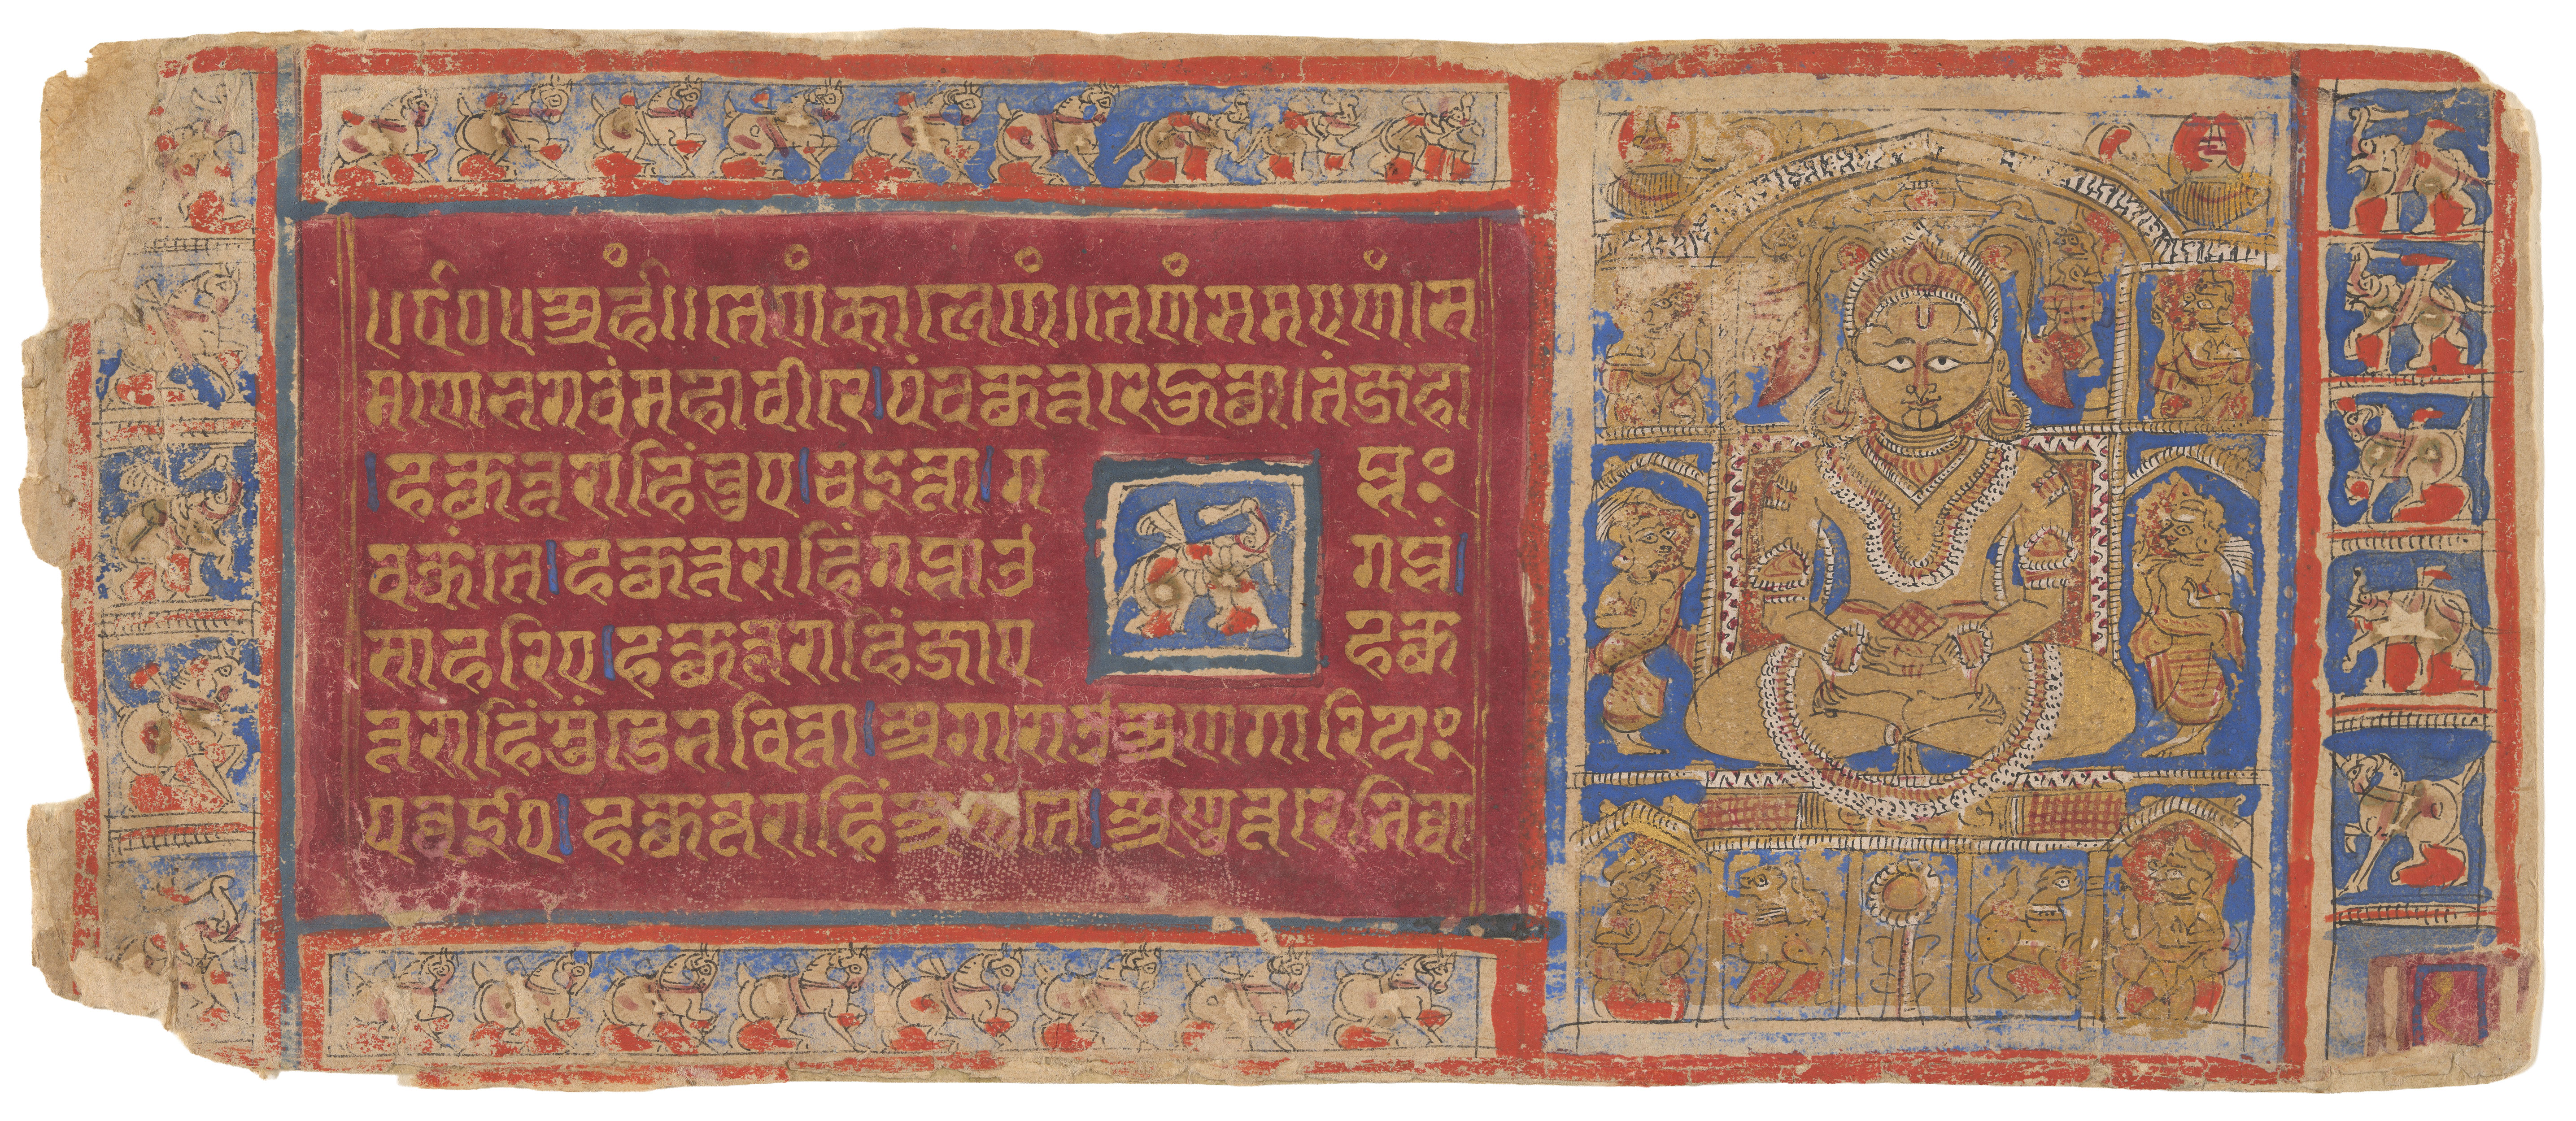 ॥र्द०॥अर्हं॥तेणंकालेणं।तेणंसमएणं।स
मणेभगवंमहावीरे।पंचहत्थुत्तरेहोत्था।तंजहा
।हत्थुत्तराहिंचुए।चइत्ता।ग
ब्भं
वक्कंते।हत्थुत्तराहिंगब्भाउ
गब्भं।
साहरिए।हत्थुत्तराहिंजाए
हत्थु
त्तराहिंमुंडेभवित्ता।अगाराओअणगारियं
पव्वइए।हत्थुत्तराहिंअणंते।अणुत्तरेनिव्वा